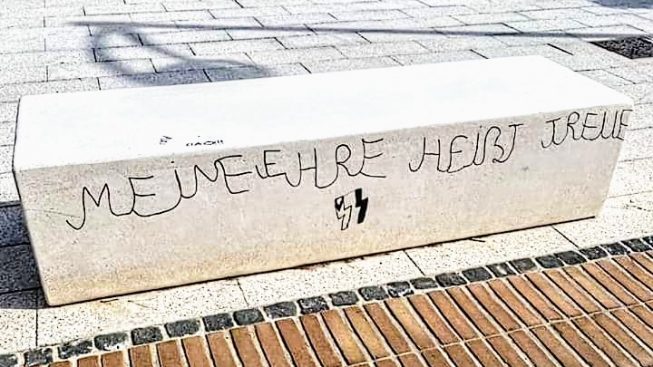 MEINE EHRE HEIßT TREUE